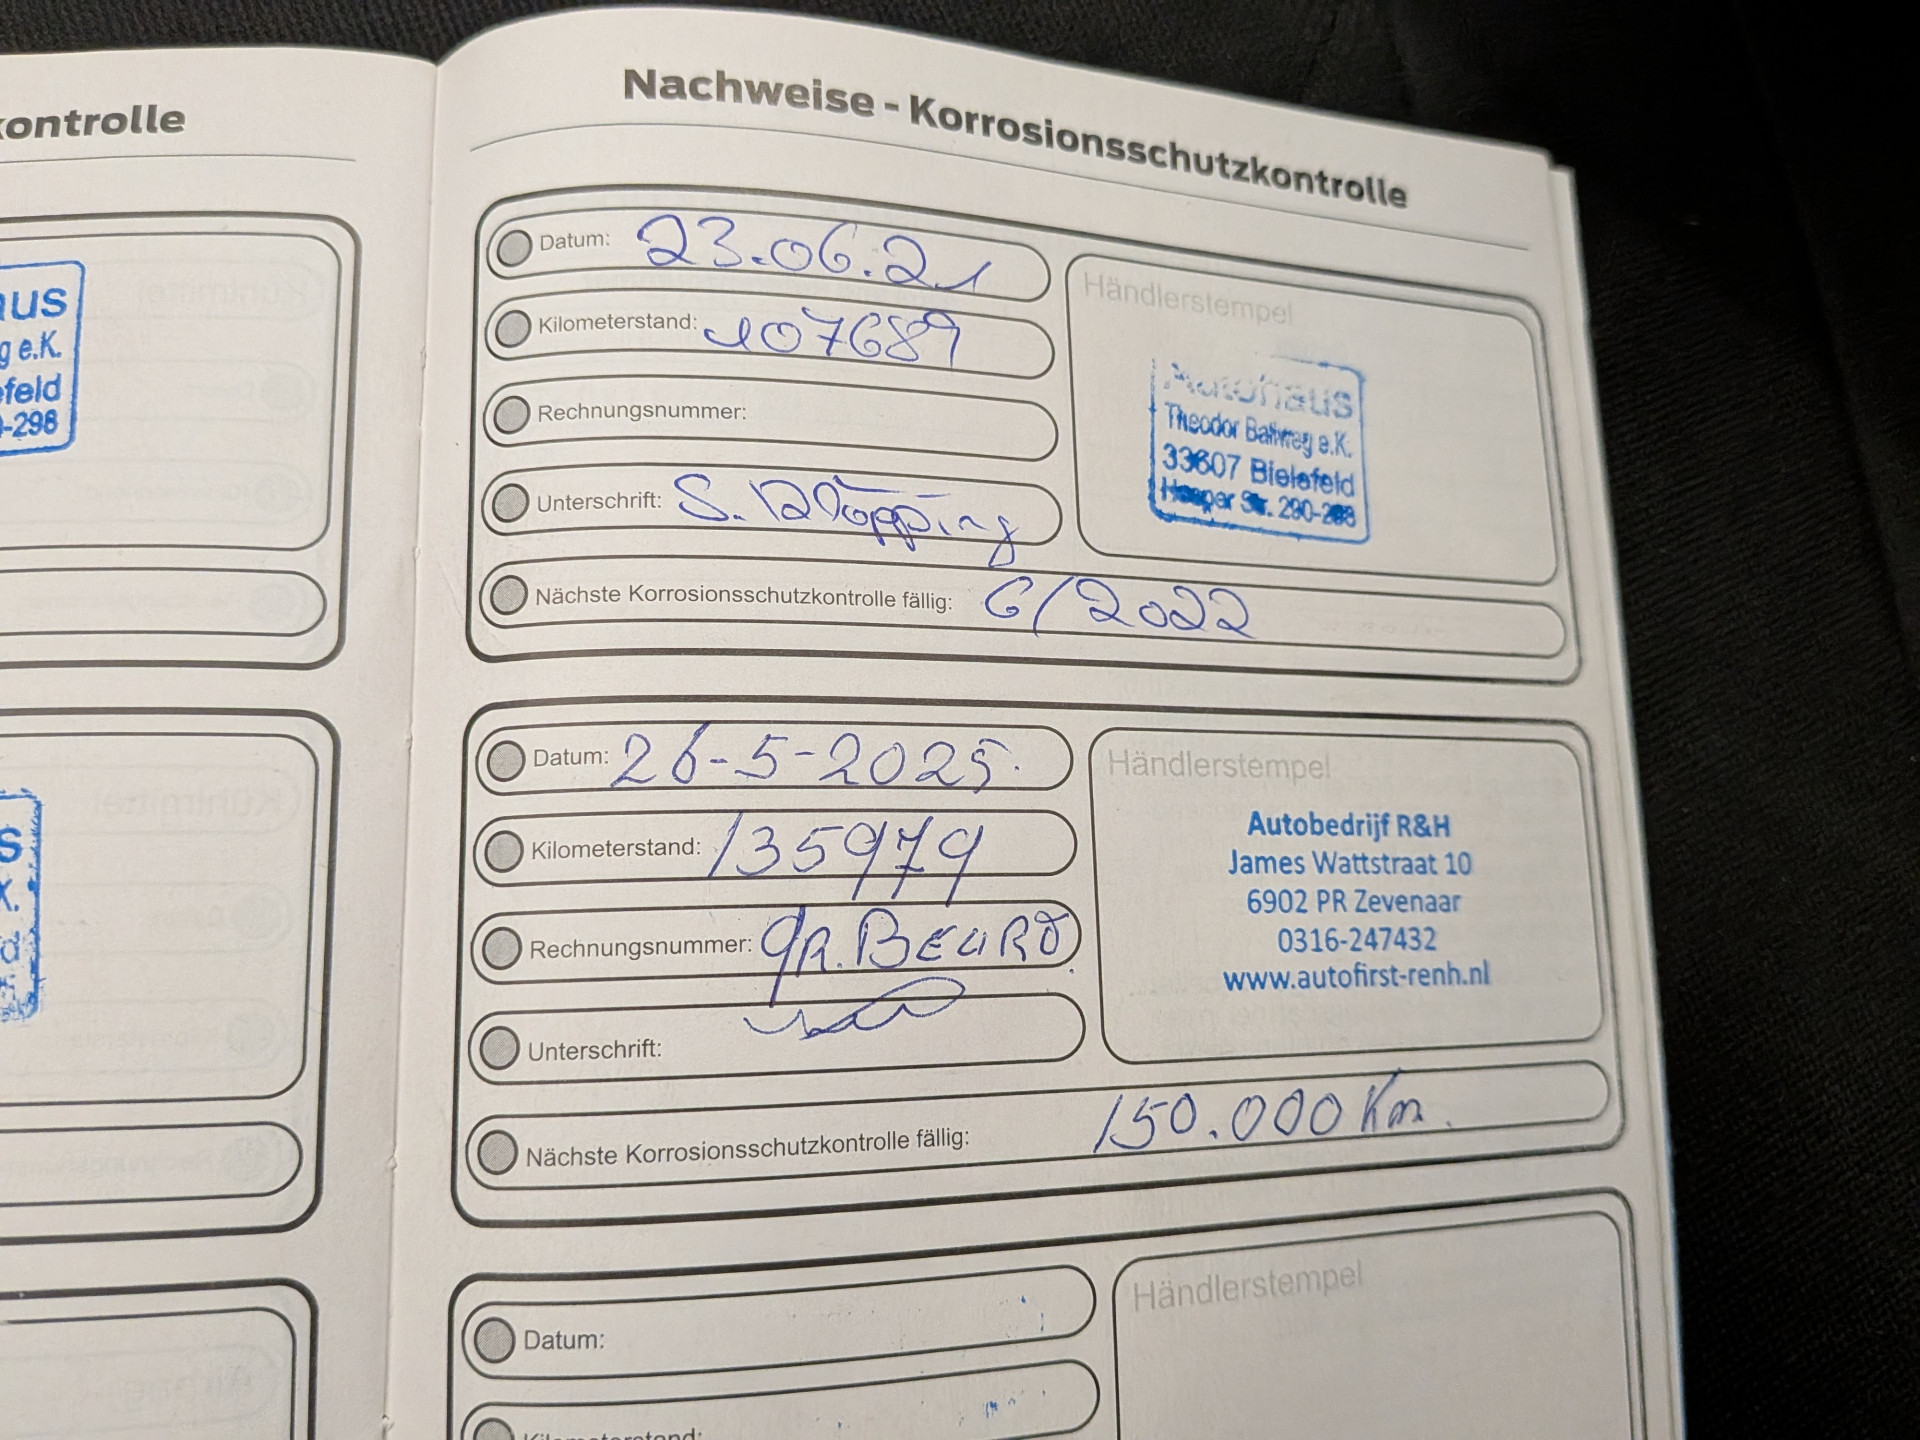 kontrolle
aus
g e.K.
efeld
0-298
s
K.
d
Nachweise - Korrosionsschutzkontrolle
Datum: 23.06.21
Kilometerstand: 107689
Rechnungsnummer:
Unterschrift: S.
Nächste Korrosionsschutzkontrolle fällig: 6/2022
Händlerstempel
Autohaus
Theodor Ballweg e.K.
33607 Bielefeld
Heeper Str. 290-298
Datum: 26-5-2025.
Kilometerstand: 135979
Rechnungsnummer: gR. BEURT
Unterschrift:
Nächste Korrosionsschutzkontrolle fällig: 150.000 Km.
Händlerstempel
Autobedrijf R&H
James Wattstraat 10
6902 PR Zevenaar
0316-247432
www.autofirst-renh.nl
Datum:
Kilometerstand:
Händlerstempel